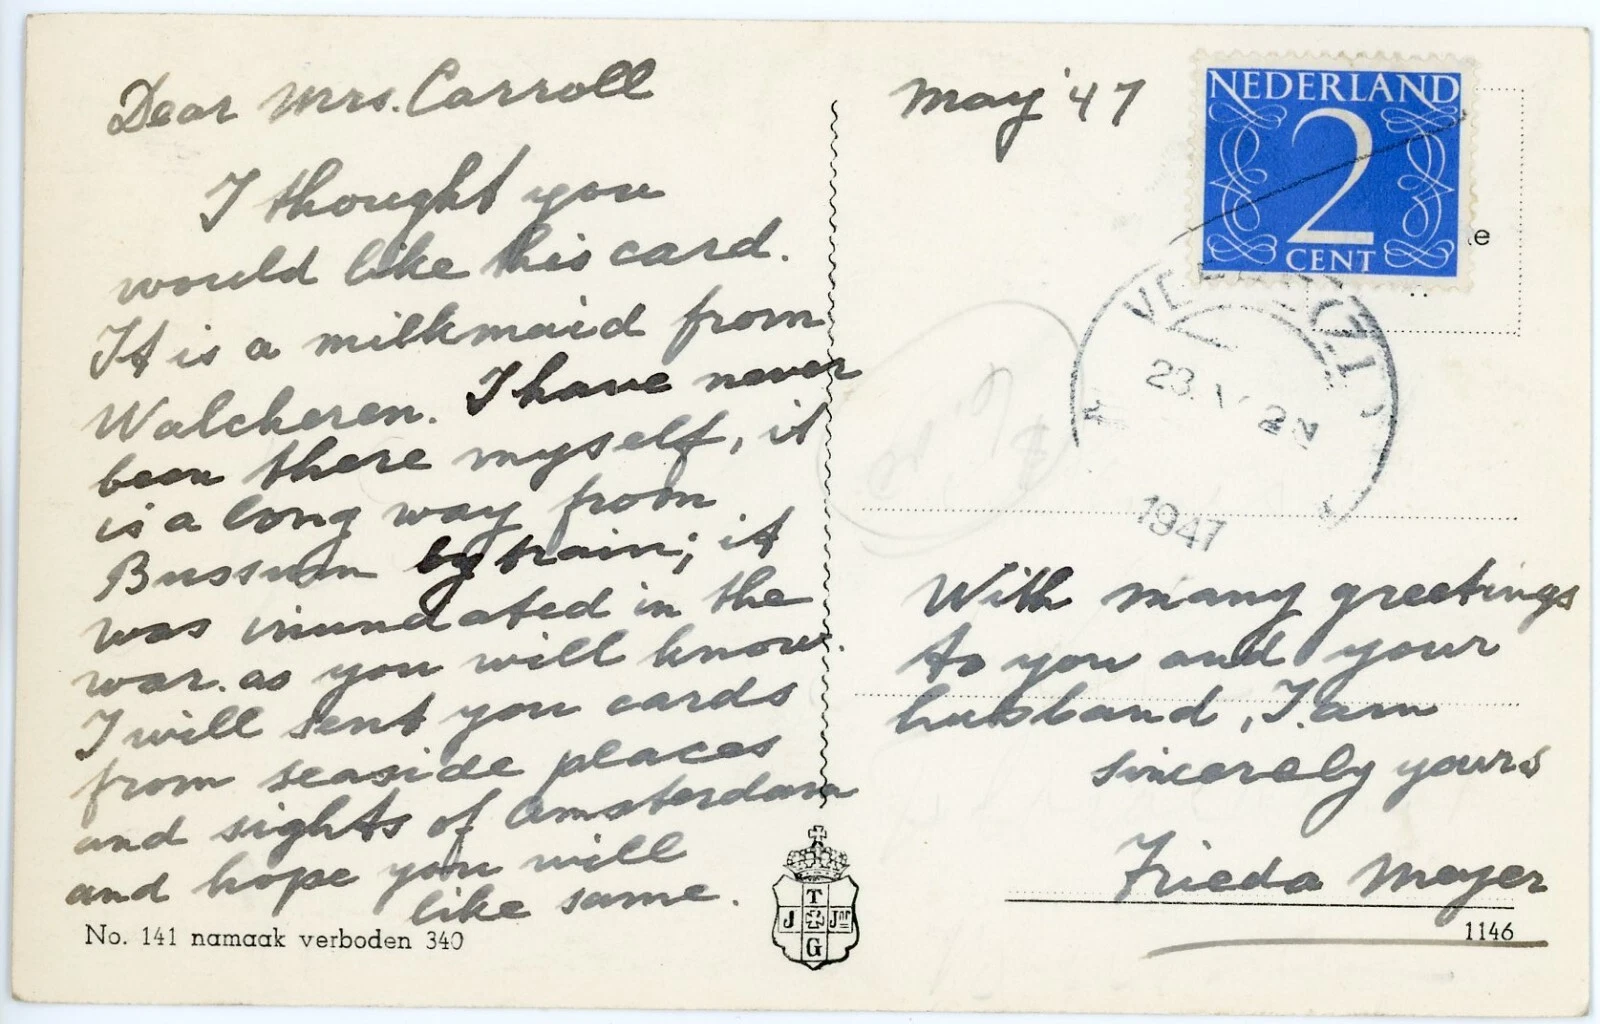 Dear Mrs. Carroll
I thought you
would like this card.
It is a milkmaid from
Walcheren. I have never
been there myself, it
is a long way from
Bussum by train; it
was inundated in the
war. as you will know.
I will sent you cards
from seaside places
and sights of Amsterdam
and hope you will
like same.
No. 141 namaak verboden 340
T
J Jnr
G
May '47
NEDERLAND
2
CENT
e
23. V
1947
With many greetings
to you and your
husband, I am
sincerely yours
Frieda Meyer
1146